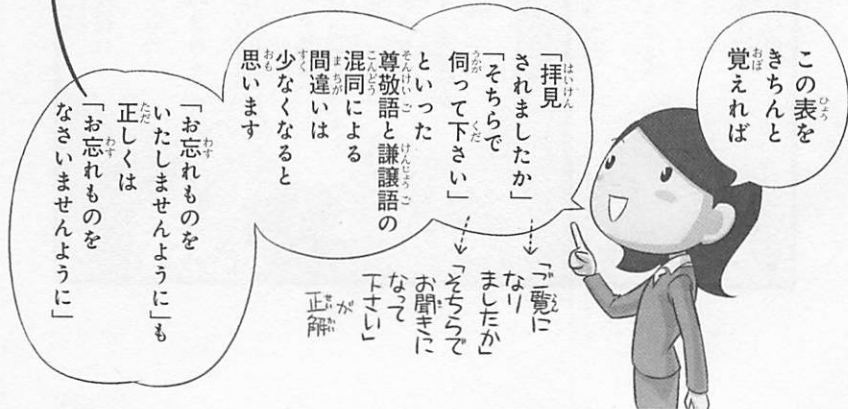 この表を
きちんと
覚えれば
「拝見
されましたか」
「そちらで
伺って下さい」
といった
尊敬語と謙譲語の
混同による
間違いは
少なくなると
思います
「ご覧に
なり
ましたか」
「そちらで
お聞きに
なって
下さい」
が
正解
「お忘れものを
いたしませんように」も
正しくは
「お忘れものを
なさいませんように」